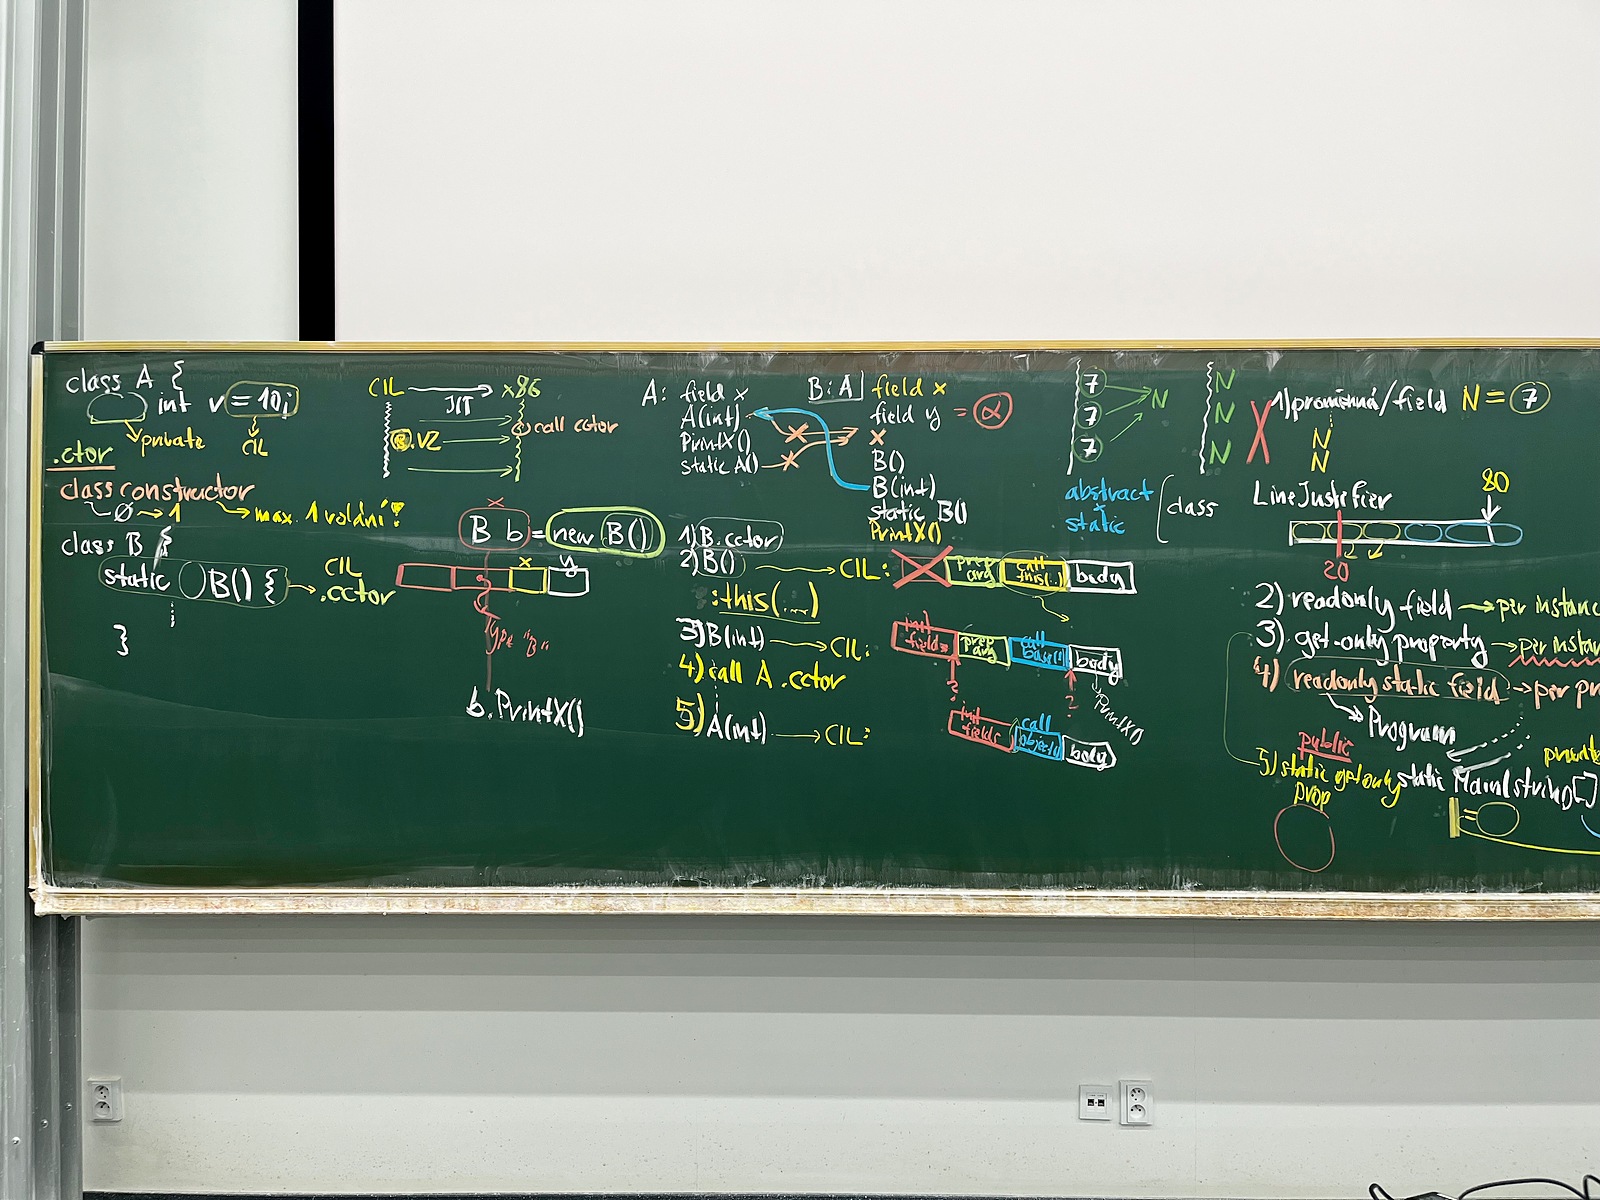 class A {
int v = 10;
private
CIL
.ctor
class constructor
∅ → 1
max. 1 volání!
class B {
static B() {
CIL
.cctor
}
CIL → x86
JIT
.VZ
call cctor
x
B b = new B()
x y
Type "B"
b.PrintX()
A: field x
A(int)
PrintX()
static A()
B:A field x
field y = α
x
B()
B(int)
static B()
PrintX()
1) B.cctor
2) B() → CIL: prep arg call this(..) body
:this(...)
3) B(int) → CIL: init fields prep arg call base() body
? ? PrintX()
4) call A .cctor
5) A(int) → CIL: init fields call object() body
7
7
7
N
N
N
N
abstract
static
class
X 1) proměnná/field N = 7
N
N
LineJustifier
80
20
2) readonly field → per instanc
3) get-only property → per instan
4) readonly static field → per pr
Program
public
5) static get only
prop
static Main(string[]